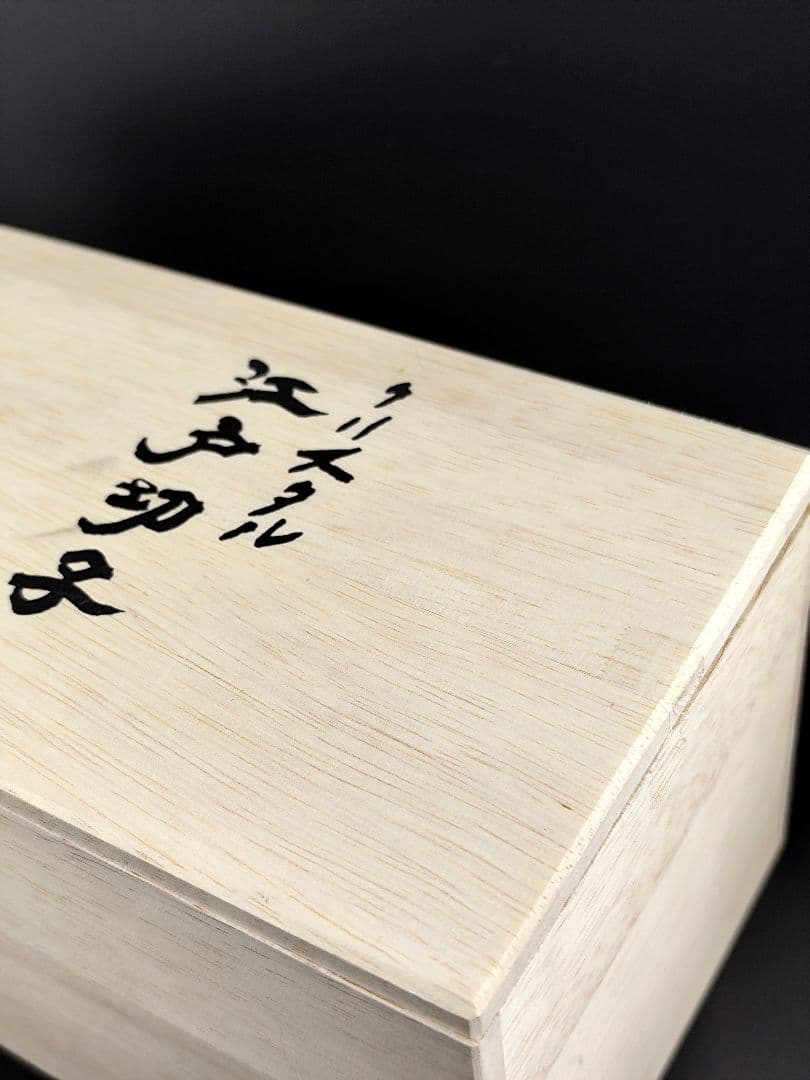 クリスタル
江戸切子